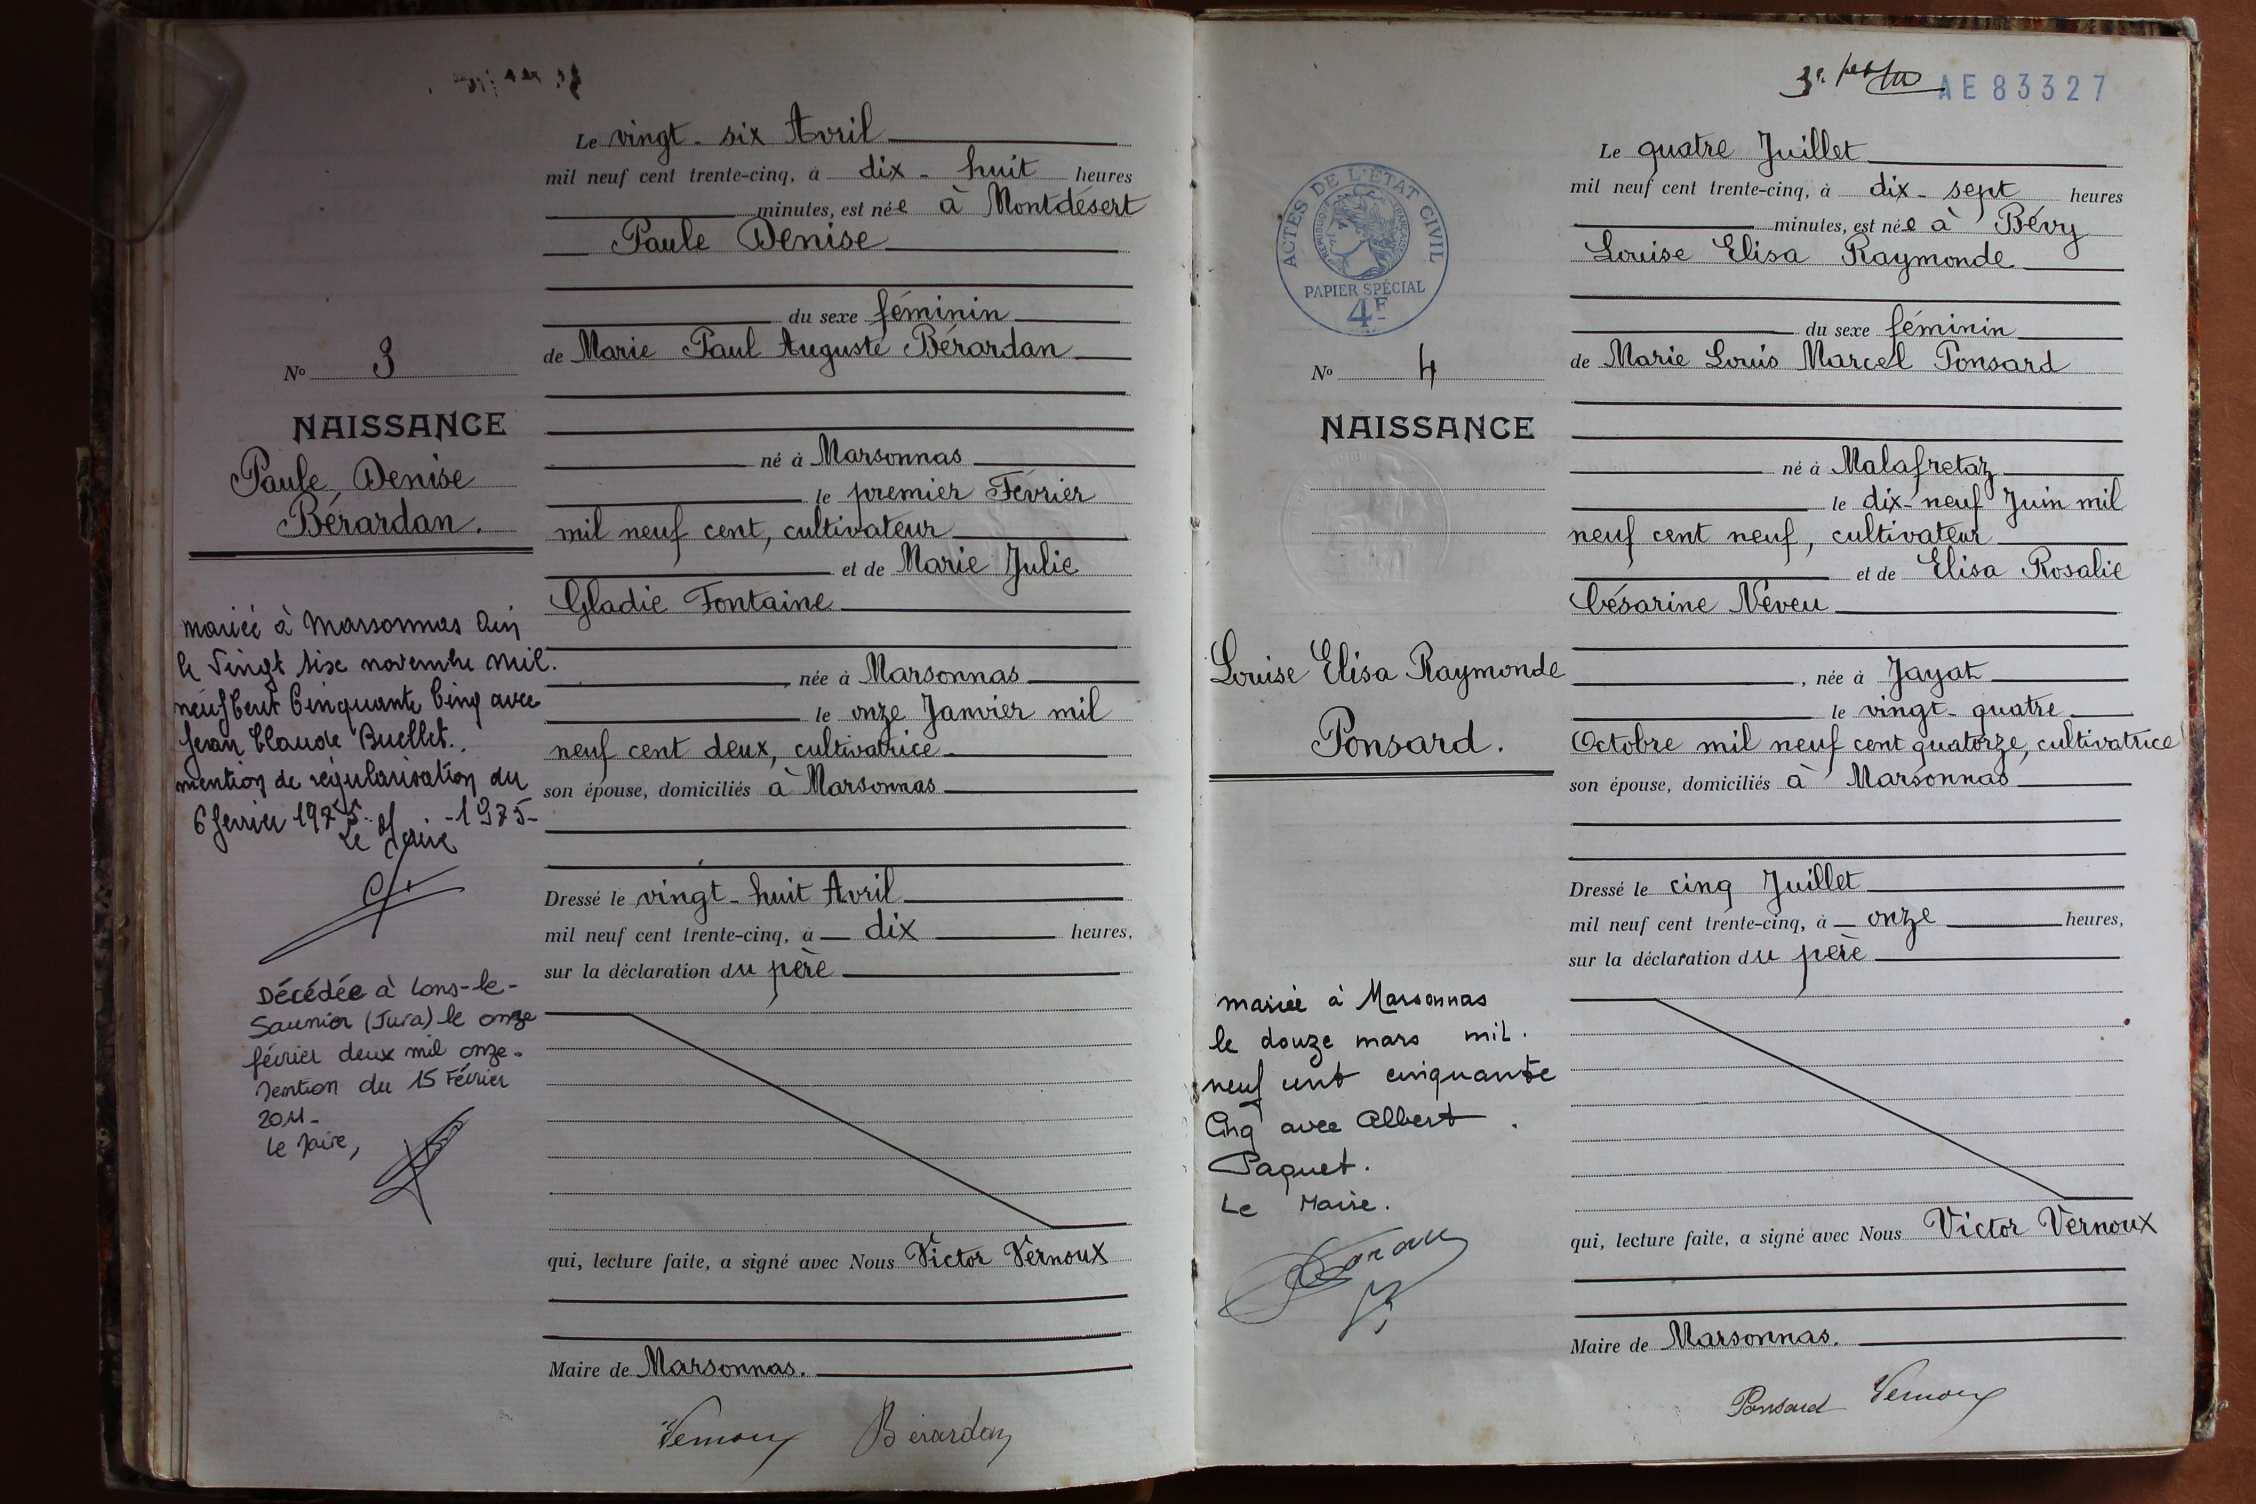 Le vingt-six Avril
mil neuf cent trente-cinq, à dix-huit heures
minutes, est née à Montdésert
Paule Denise
du sexe féminin
de Marie Paul Auguste Bérardan
né à Marsonnas
le premier Février
mil neuf cent, cultivateur
et de Marie Julie
Gladie Fontaine
née à Marsonnas
le onze Janvier mil
neuf cent deux, cultivatrice
son épouse, domiciliés à Marsonnas
Dressé le vingt-huit Avril
mil neuf cent trente-cinq, à dix heures,
sur la déclaration du père
qui, lecture faite, a signé avec Nous Victor Vernoux
Maire de Marsonnas.
Vernoux Bérardan
No 3
NAISSANCE
Paule Denise
Bérardan.
mariée à Marsonnas Ain
le Vingt six novembre mil.
neuf Cent Cinquante Cinq avec
Jean Claude Buellet.
mention de régularisation du
6 février 1975. -1975-
Le Maire
Décédée à Lons-le-
Saunier (Jura) le onze
février deux mil onze.
Mention du 15 Février
2011-
Le Maire,
AE83327
Le quatre Juillet
mil neuf cent trente-cinq, à dix-sept heures
minutes, est née à Bévy
Louise Elisa Raymonde
du sexe féminin
de Marie Louis Marcel Ponsard
né à Malafretaz
le dix-neuf Juin mil
neuf cent neuf, cultivateur
et de Elisa Rosalie
Césarine Neveu
, née à Jayat
le vingt-quatre
Octobre mil neuf cent quatorze, cultivatrice
son épouse, domiciliés à Marsonnas
Dressé le cinq Juillet
mil neuf cent trente-cinq, à onze heures,
sur la déclaration du père
qui, lecture faite, a signé avec Nous Victor Vernoux
Maire de Marsonnas.
Ponsard Vernoux
ACTES DE L'ETAT CIVIL
REPUBLIQUE FRANÇAISE
PAPIER SPÉCIAL
4F
No 4
NAISSANCE
Louise Elisa Raymonde
Ponsard.
mariée à Marsonnas
le douze mars mil.
neuf cent cinquante
Cinq avec Albert
Paquet.
Le Maire.